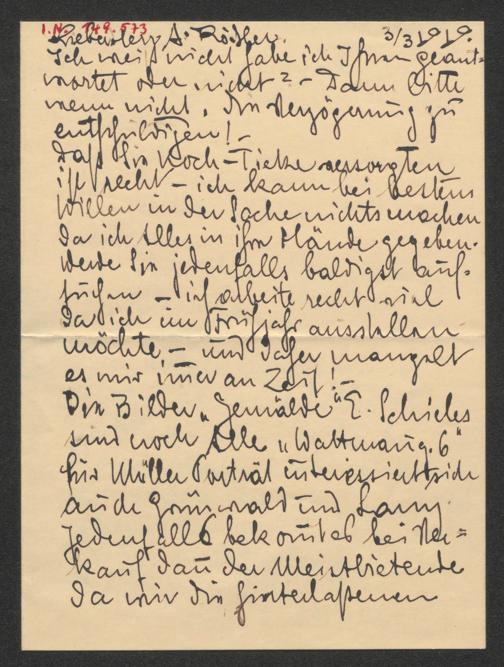 I.N. 149.573
Lieber Herr A. Roessler. 3/3 1919.
Ich weiß nicht habe ich Ihnen geant-
wortet oder nicht? – Dann bitte
wenn nicht, die Verzögerung zu
entschuldigen! –
Daß Sie Koch – Tietze versorgten
ist recht – ich kann bei bestem
Willen in der Sache nichts machen
da ich Alles in ihre Hände gegeben.
Werde Sie jedenfalls baldigst auf-
suchen – ich arbeite recht viel
da ich im Frühjahr ausstellen
möchte – und daher mangelt
es mir immer an Zeit! –
Die Bilder „Gemälde" E. Schieles
sind noch Alle „Wattmang. 6"
für Müller Porträt interessiert sich
auch Grünwald und Lany.
Jedenfalls bekommt es bei Ver=
kauf dann der Meistbietende
da mir die Hinterlaßenen